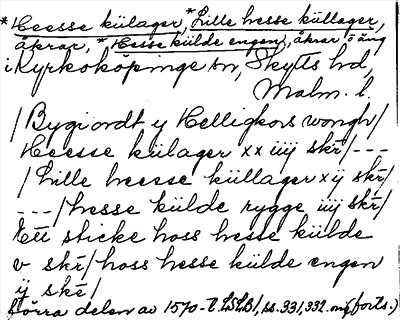 *Heesse külager, *Lille hesse küllager,
åkrar, *Hesse külde engen, åkrar o äng
i Kyrkoköpinge sn, Skytts hd,
Malm. l.
/Bygiordt y Helligkors wongh/
Heesse külager xx iiij skr/ ---
/Lille heesse küllager x ij skr/
---/hesse külde rygge iiij skr/
Ett sticke hoss hesse külde
v skr/ hoss hesse külde engen
ij skr/
Förra delen av 1570- LSLB/ ss. 331, 332. (forts.)